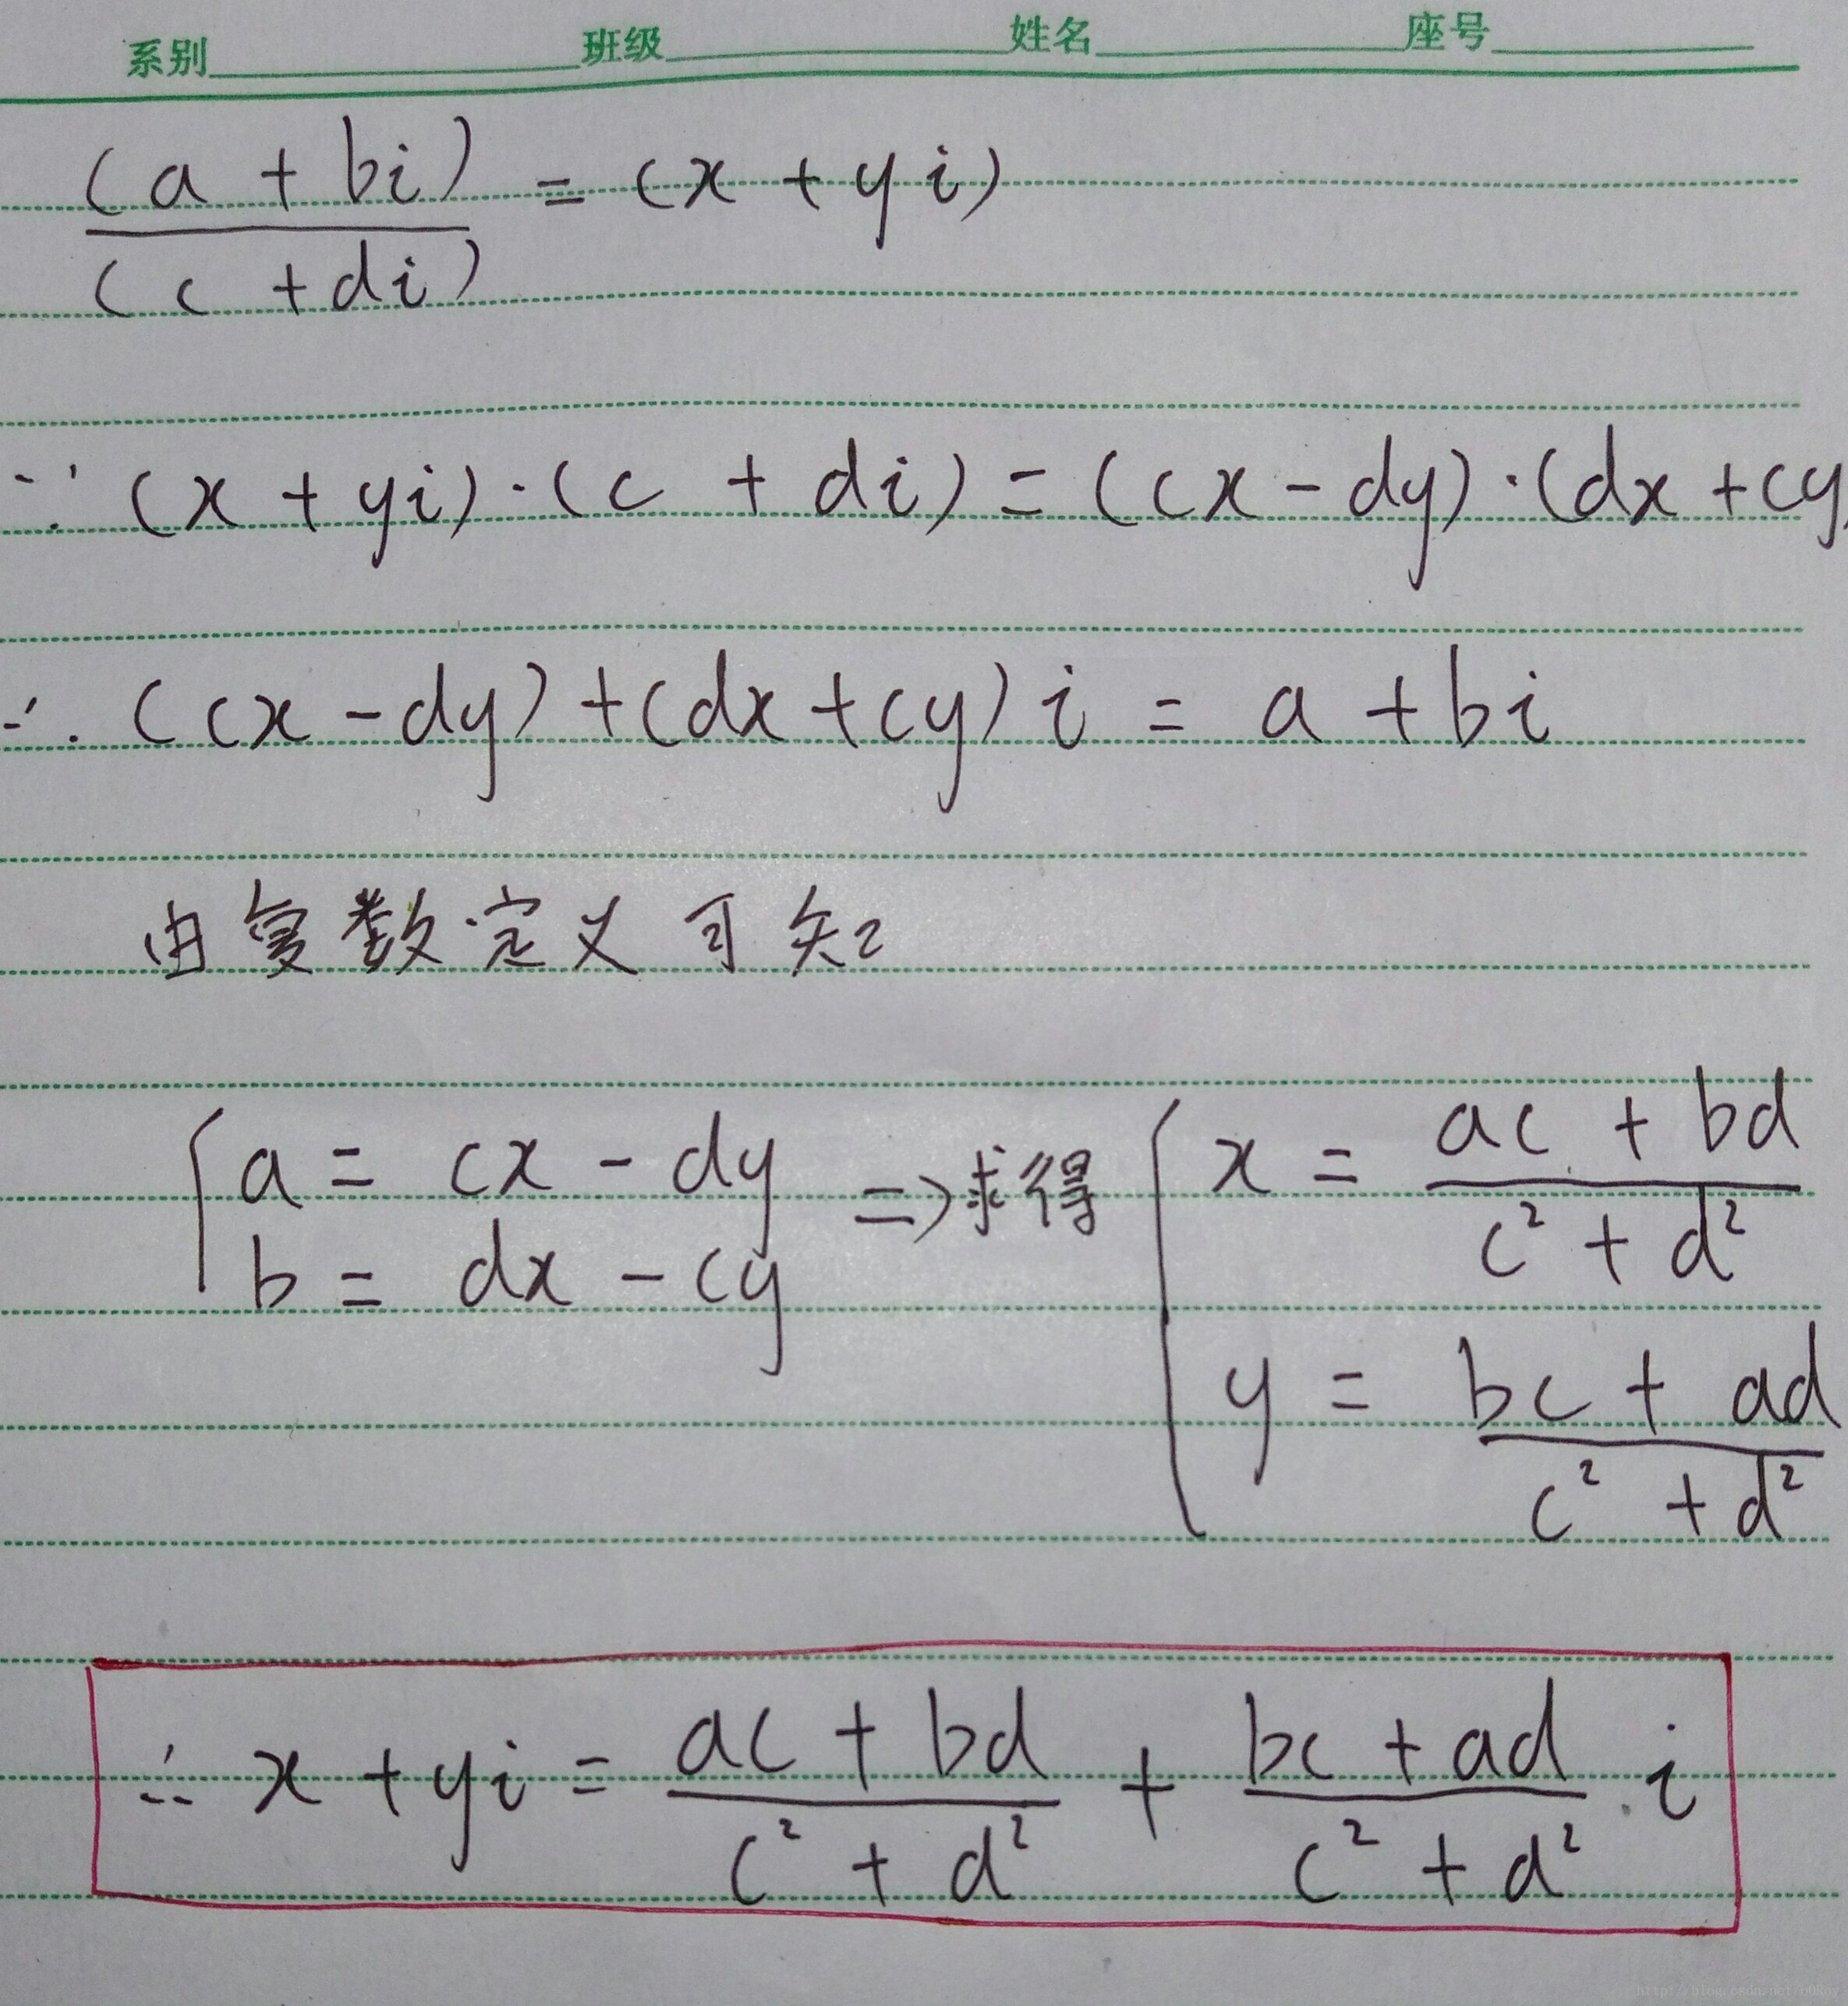 系别 班级 姓名 座号
(a + bi) / (c + di) = (x + yi)
∵ (x + yi)·(c + di) = (cx - dy)·(dx + cy
∴ (cx - dy) + (dx + cy) i = a + bi
由复数定义可知
{ a = cx - dy
b = dx - cy
=> 求得
{ x = (ac + bd) / (c² + d²)
y = (bc + ad) / (c² + d²)
∴ x + yi = (ac + bd) / (c² + d²) + (bc + ad) / (c² + d²) · i